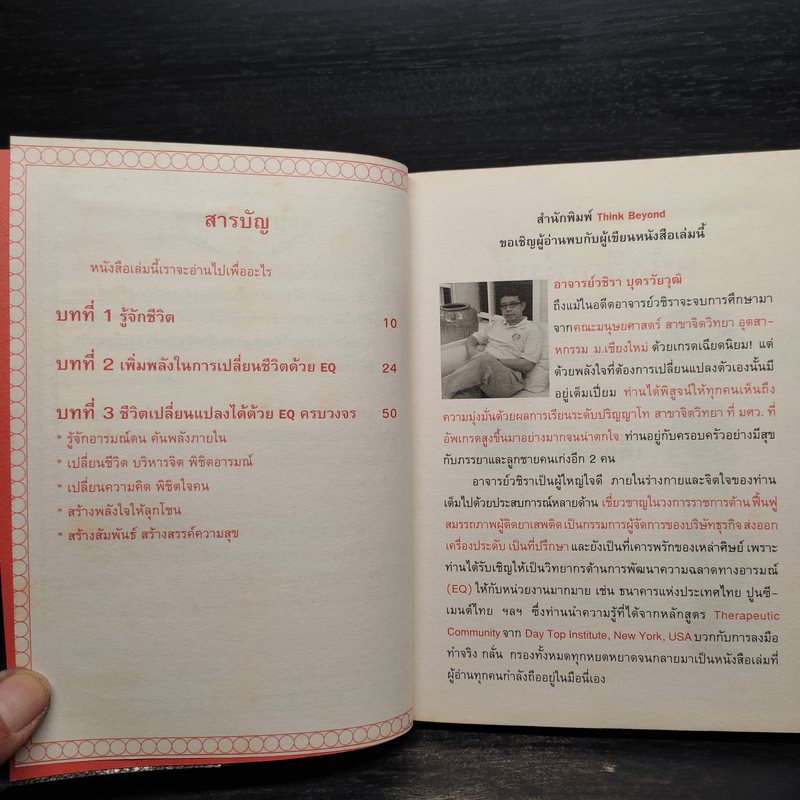 สารบัญ
หนังสือเล่มนี้เราจะอ่านไปเพื่ออะไร
บทที่ 1 รู้จักชีวิต 10
บทที่ 2 เพิ่มพลังในการเปลี่ยนชีวิตด้วย EQ 24
บทที่ 3 ชีวิตเปลี่ยนแปลงได้ด้วย EQ ครบวงจร 50
* รู้จักอารมณ์ตน ค้นพลังภายใน
* เปลี่ยนชีวิต บริหารจิต พิชิตอารมณ์
* เปลี่ยนความคิด พิชิตใจคน
* สร้างพลังใจให้ลุกโชน
* สร้างสัมพันธ์ สร้างสรรค์ความสุข
สำนักพิมพ์ Think Beyond
ขอเชิญผู้อ่านพบกับผู้เขียนหนังสือเล่มนี้
อาจารย์วชิรา บุตรวัยวุฒิ
ถึงแม้ในอดีตอาจารย์วชิราจะจบการศึกษามา
จากคณะมนุษยศาสตร์ สาขาจิตวิทยา อุตสา-
หกรรม ม.เชียงใหม่ ด้วยเกรดเฉียดนิยม! แต่
ด้วยพลังใจที่ต้องการเปลี่ยนแปลงตัวเองนั้นมี
อยู่เต็มเปี่ยม ท่านได้พิสูจน์ให้ทุกคนเห็นถึง
ความมุ่งมั่นด้วยผลการเรียนระดับปริญญาโท สาขาจิตวิทยา ที่ มศว. ที่
อัพเกรดสูงขึ้นมาอย่างมากจนน่าตกใจ ท่านอยู่กับครอบครัวอย่างมีสุข
กับภรรยาและลูกชายคนเก่งอีก 2 คน
อาจารย์วชิราเป็นผู้ใหญ่ใจดี ภายในร่างกายและจิตใจของท่าน
เต็มไปด้วยประสบการณ์หลายด้าน เชี่ยวชาญในวงการราชการด้านฟื้นฟู
สมรรถภาพผู้ติดยาเสพติด เป็นกรรมการผู้จัดการของบริษัทธุรกิจ ส่งออก
เครื่องประดับ เป็นที่ปรึกษา และยังเป็นที่เคารพรักของเหล่าศิษย์ เพราะ
ท่านได้รับเชิญให้เป็นวิทยากรด้านการพัฒนาความฉลาดทางอารมณ์
(EQ) ให้กับหน่วยงานมากมาย เช่น ธนาคารแห่งประเทศไทย ปูนซี-
เมนต์ไทย ฯลฯ ซึ่งท่านนำความรู้ที่ได้จากหลักสูตร Therapeutic
Community จาก Day Top Institute, New York, USA บวกกับการลงมือ
ทำจริง กลั่น กรองทั้งหมดทุกหยดหยาดจนกลายมาเป็นหนังสือเล่มที่
ผู้อ่านทุกคนกำลังถืออยู่ในมือนี่เอง